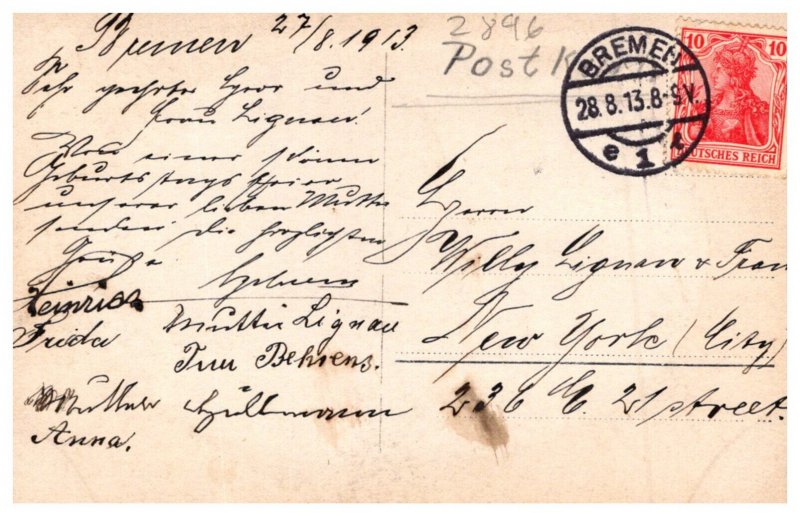 Bremen 27/8.1913.
Sehr geehrter Herr und
Frau Lignau!
Von einer schönen
Geburtstags feier
unserer lieben Mutter
senden die herzlichsten
Grüße
Heinrich
Frida Mutter Lignau
Behrens.
Mutter
Anna.
2896
Post K
BREMEN
28.8.13.8-9V.
e 1 e
10 10
DEUTSCHES REICH
Herrn
Willy Lignau u Frau
New York (City)
236 E. 21 street.